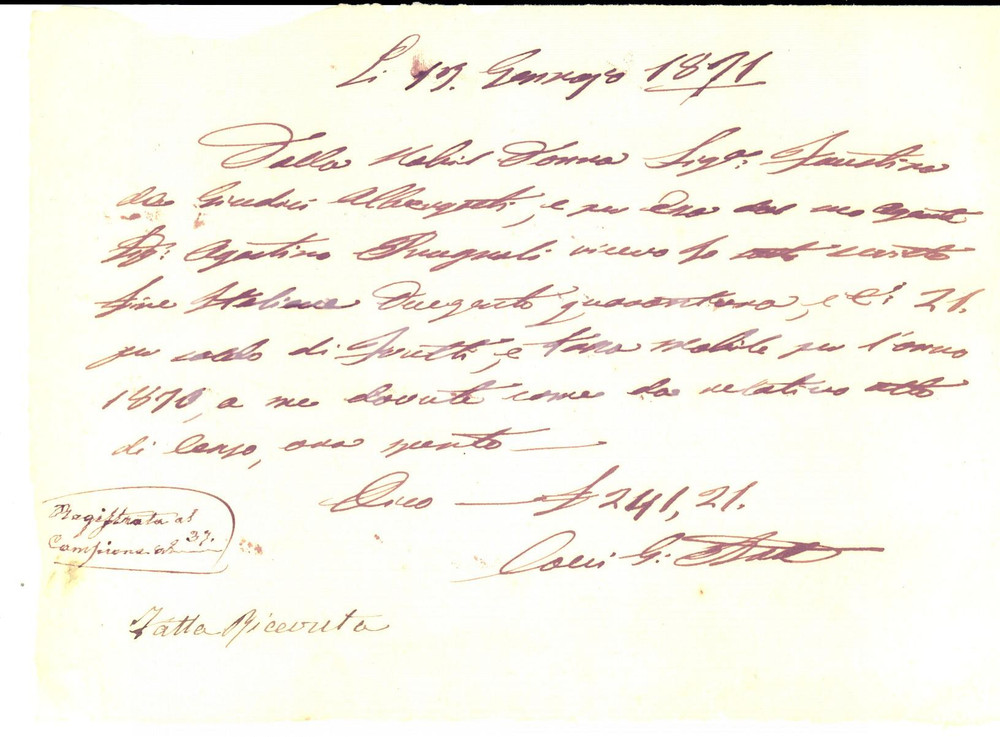 Li 13. Gennajo 1871
Dalla Nobil Donna Sigª. Faustina
de Giudici Albergotti, e per Essa dal suo agente
Sigʳ. Agostino Brugnoli ricevo Io scritto
Lire Italiane Duegento quarantuna, e Cⁱ 21.
per saldo di frutti, e tassa mobile per l'anno
1870, a me dovute come da relativo atto
di Censo, ora spento
Dico — £ 241,21.
G.
Registrata al
Campione al 37.
Fatta Ricevuta